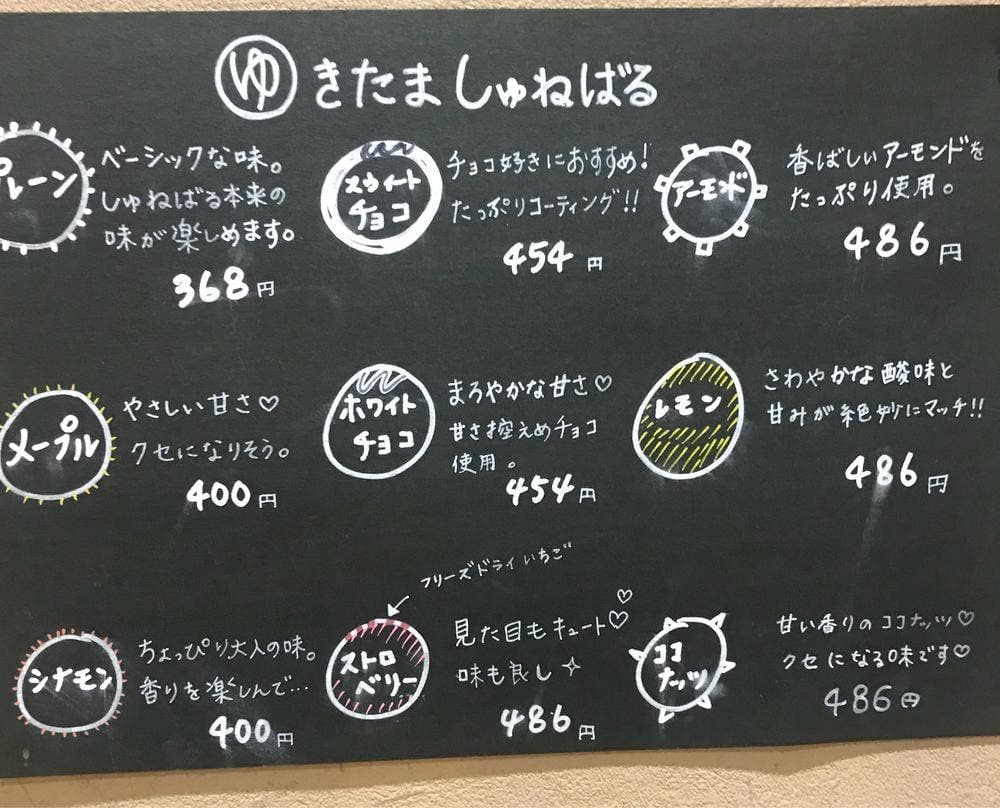 ゆきたま しゅねばる
プレーン
ベーシックな味。
しゅねばる本来の
味が楽しめます。
368円
スウィート
チョコ
チョコ好きにおすすめ!
たっぷりコーティング!!
454円
アーモンド
香ばしいアーモンドを
たっぷり使用。
486円
メープル
やさしい甘さ♡
クセになりそう。
400円
ホワイト
チョコ
まろやかな甘さ♡
甘さ控えめチョコ
使用。
454円
レモン
さわやかな酸味と
甘みが絶妙にマッチ!!
486円
シナモン
ちょっぴり大人の味。
香りを楽しんで…
400円
フリーズドライいちご
ストロ
ベリー
見た目もキュート♡
味も良し
486円
ココ
ナッツ
甘い香りのココナッツ♡
クセになる味です♡
486円